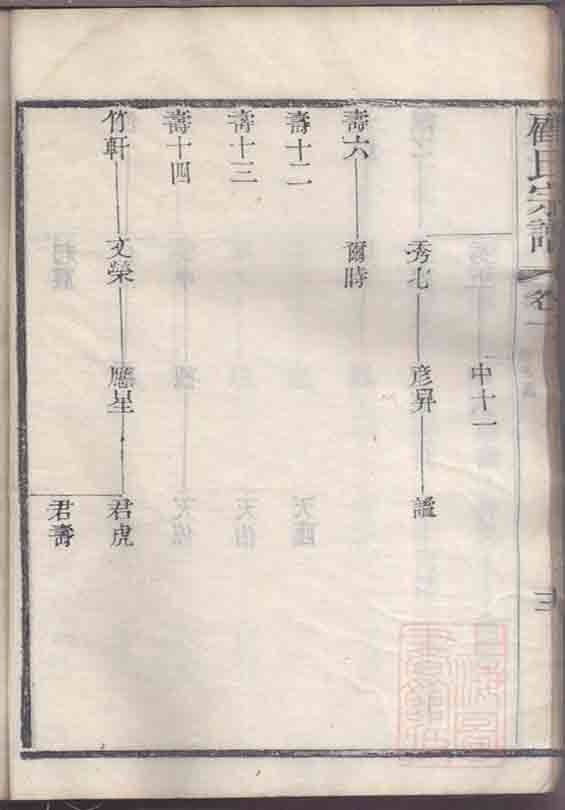 氏宗譜 卷一 三
中十一
秀七 彦昇 謐
壽六 爾時
壽十二
壽十三
壽十四
竹軒 文榮 應星 君虎
君壽